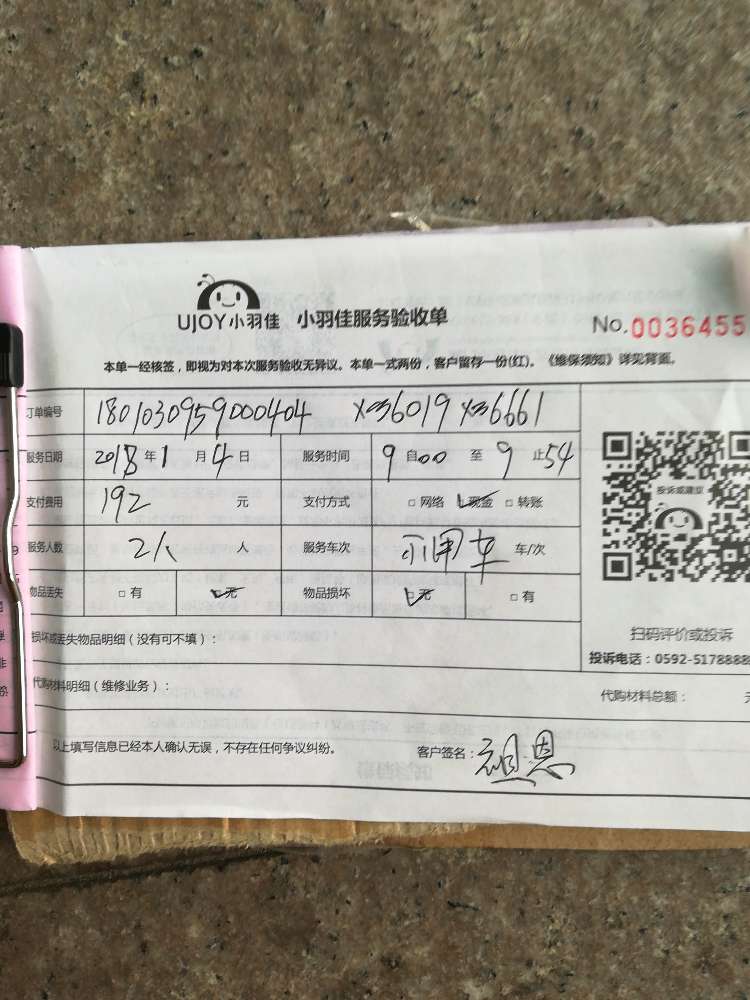 UJOY小羽佳 小羽佳服务验收单
No.0036455
本单一经核签，即视为对本次服务验收无异议。本单一式两份，客户留存一份(红)。《维保须知》详见背面。
订单编号 180103095900404 X36019 X36661
服务日期 2018年1月4日 服务时间 9自00至9止54
支付费用 192元 支付方式 □网络 ☑现金 □转账
投诉或建议
服务人数 2人 人 服务车次 小用车 车/次
物品丢失 □有 ☑无 物品损坏 ☑无 □有
扫码评价或投诉
损坏或丢失物品明细（没有可不填）：
投诉电话：0592-5178888
代购材料明细（维修业务）：
代购材料总额：
以上填写信息已经本人确认无误，不存在任何争议纠纷。 客户签名：